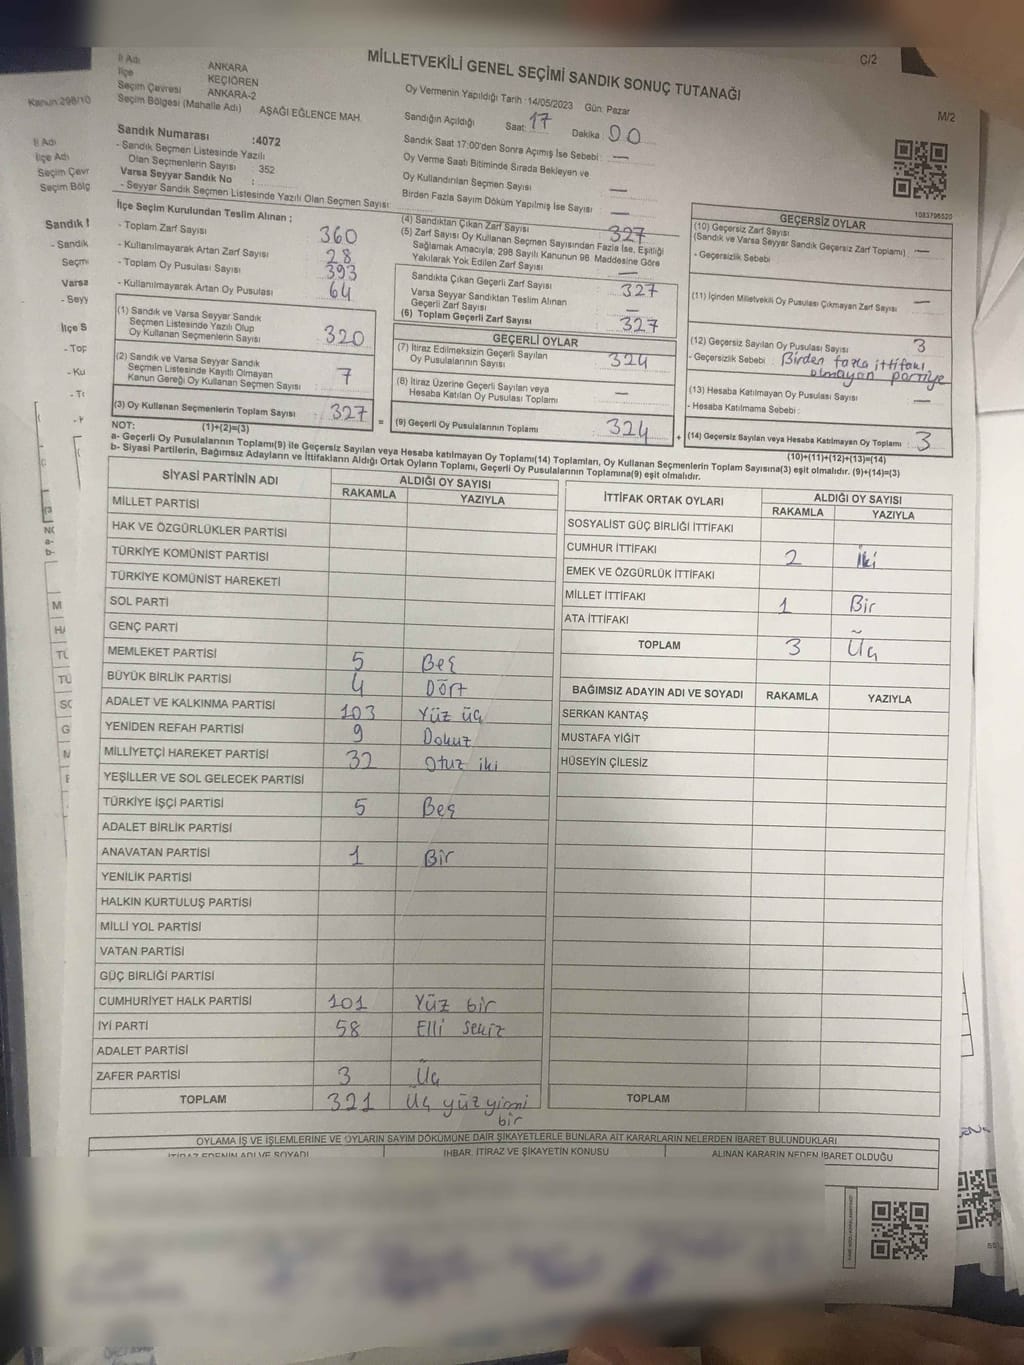 C/2
MİLLETVEKİLİ GENEL SEÇİMİ SANDIK SONUÇ TUTANAĞI
M/2
İl Adı ANKARA
İlçe KEÇİÖREN
Seçim Çevresi ANKARA-2
Seçim Bölgesi (Mahalle Adı) AŞAĞI EĞLENCE MAH.
Oy Vermenin Yapıldığı Tarih :14/05/2023 Gün: Pazar
Sandığın Açıldığı Saat: 17 Dakika 00
Sandık Saat 17:00'den Sonra Açımış İse Sebebi : —
Oy Verme Saati Bitiminde Sırada Bekleyen ve
Oy Kullandırılan Seçmen Sayısı —
Birden Fazla Sayım Döküm Yapılmış İse Sayısı —
Sandık Numarası :4072
- Sandık Seçmen Listesinde Yazılı
Olan Seçmenlerin Sayısı : 352
Varsa Seyyar Sandık No :
- Seyyar Sandık Seçmen Listesinde Yazılı Olan Seçmen Sayısı:
İlçe Seçim Kurulundan Teslim Alınan ;
- Toplam Zarf Sayısı 360
- Kullanılmayarak Artan Zarf Sayısı 28
- Toplam Oy Pusulası Sayısı 393
- Kullanılmayarak Artan Oy Pusulası 64
(1) Sandık ve Varsa Seyyar Sandık
Seçmen Listesinde Yazılı Olup
Oy Kullanan Seçmenlerin Sayısı 320
(2) Sandık ve Varsa Seyyar Sandık
Seçmen Listesinde Kayıtlı Olmayan
Kanun Gereği Oy Kullanan Seçmen Sayısı 7
(3) Oy Kullanan Seçmenlerin Toplam Sayısı : 327
(1)+(2)=(3)
(4) Sandıktan Çıkan Zarf Sayısı 327
(5) Zarf Sayısı Oy Kullanan Seçmen Sayısından Fazla İse, Eşitliği
Sağlamak Amacıyla; 298 Sayılı Kanunun 98. Maddesine Göre
Yakılarak Yok Edilen Zarf Sayısı —
Sandıkta Çıkan Geçerli Zarf Sayısı : 327
Varsa Seyyar Sandıktan Teslim Alınan
Geçerli Zarf Sayısı —
(6) Toplam Geçerli Zarf Sayısı 327
GEÇERLİ OYLAR
(7) İtiraz Edilmeksizin Geçerli Sayılan
Oy Pusulalarının Sayısı : 324
(8) İtiraz Üzerine Geçerli Sayılan veya
Hesaba Katılan Oy Pusulası Toplamı —
= (9) Geçerli Oy Pusulalarının Toplamı : 324 +
1083796520
GEÇERSİZ OYLAR
(10) Geçersiz Zarf Sayısı
(Sandık ve Varsa Seyyar Sandık Geçersiz Zarf Toplamı) : —
- Geçersizlik Sebebi :
(11) İçinden Milletvekili Oy Pusulası Çıkmayan Zarf Sayısı —
(12) Geçersiz Sayılan Oy Pusulası Sayısı 3
- Geçersizlik Sebebi : Birden fazla ittifakı
olmayan partiye
(13) Hesaba Katılmayan Oy Pusulası Sayısı —
- Hesaba Katılmama Sebebi :
(14) Geçersiz Sayılan veya Hesaba Katılmayan Oy Toplamı : 3
(10)+(11)+(12)+(13)=(14)
NOT:
a- Geçerli Oy Pusulalarının Toplamı(9) ile Geçersiz Sayılan veya Hesaba katılmayan Oy Toplamı(14) Toplamları, Oy Kullanan Seçmenlerin Toplam Sayısına(3) eşit olmalıdır. (9)+(14)=(3)
b- Siyasi Partilerin, Bağımsız Adayların ve İttifakların Aldığı Ortak Oyların Toplamı, Geçerli Oy Pusulalarının Toplamına(9) eşit olmalıdır.
SİYASİ PARTİNİN ADI ALDIĞI OY SAYISI
RAKAMLA YAZIYLA
MİLLET PARTİSİ
HAK VE ÖZGÜRLÜKLER PARTİSİ
TÜRKİYE KOMÜNİST PARTİSİ
TÜRKİYE KOMÜNİST HAREKETİ
SOL PARTİ
GENÇ PARTİ
MEMLEKET PARTİSİ 5 Beş
BÜYÜK BİRLİK PARTİSİ 4 Dört
ADALET VE KALKINMA PARTİSİ 103 Yüz üç
YENİDEN REFAH PARTİSİ 9 Dokuz
MİLLİYETÇİ HAREKET PARTİSİ 32 Otuz iki
YEŞİLLER VE SOL GELECEK PARTİSİ
TÜRKİYE İŞÇİ PARTİSİ 5 Beş
ADALET BİRLİK PARTİSİ
ANAVATAN PARTİSİ 1 Bir
YENİLİK PARTİSİ
HALKIN KURTULUŞ PARTİSİ
MİLLİ YOL PARTİSİ
VATAN PARTİSİ
GÜÇ BİRLİĞİ PARTİSİ
CUMHURİYET HALK PARTİSİ 101 Yüz bir
İYİ PARTİ 58 Elli sekiz
ADALET PARTİSİ
ZAFER PARTİSİ 3 Üç
TOPLAM 321 Üç yüz yirmi
bir
İTTİFAK ORTAK OYLARI ALDIĞI OY SAYISI
RAKAMLA YAZIYLA
SOSYALİST GÜÇ BİRLİĞİ İTTİFAKI
CUMHUR İTTİFAKI 2 İki
EMEK VE ÖZGÜRLÜK İTTİFAKI
MİLLET İTTİFAKI 1 Bir
ATA İTTİFAKI
TOPLAM 3 Üç
BAĞIMSIZ ADAYIN ADI VE SOYADI RAKAMLA YAZIYLA
SERKAN KANTAŞ
MUSTAFA YİĞİT
HÜSEYİN ÇİLESİZ
TOPLAM
OYLAMA İŞ VE İŞLEMLERİNE VE OYLARIN SAYIM DÖKÜMÜNE DAİR ŞİKAYETLERLE BUNLARA AİT KARARLARIN NELERDEN İBARET BULUNDUKLARI
İTİRAZ EDENİN ADI VE SOYADI İHBAR, İTİRAZ VE ŞİKAYETİN KONUSU ALINAN KARARIN NEDEN İBARET OLDUĞU
Kanun 298/10
İl Adı
İlçe Adı
Seçim Çevr
Seçim Bölg